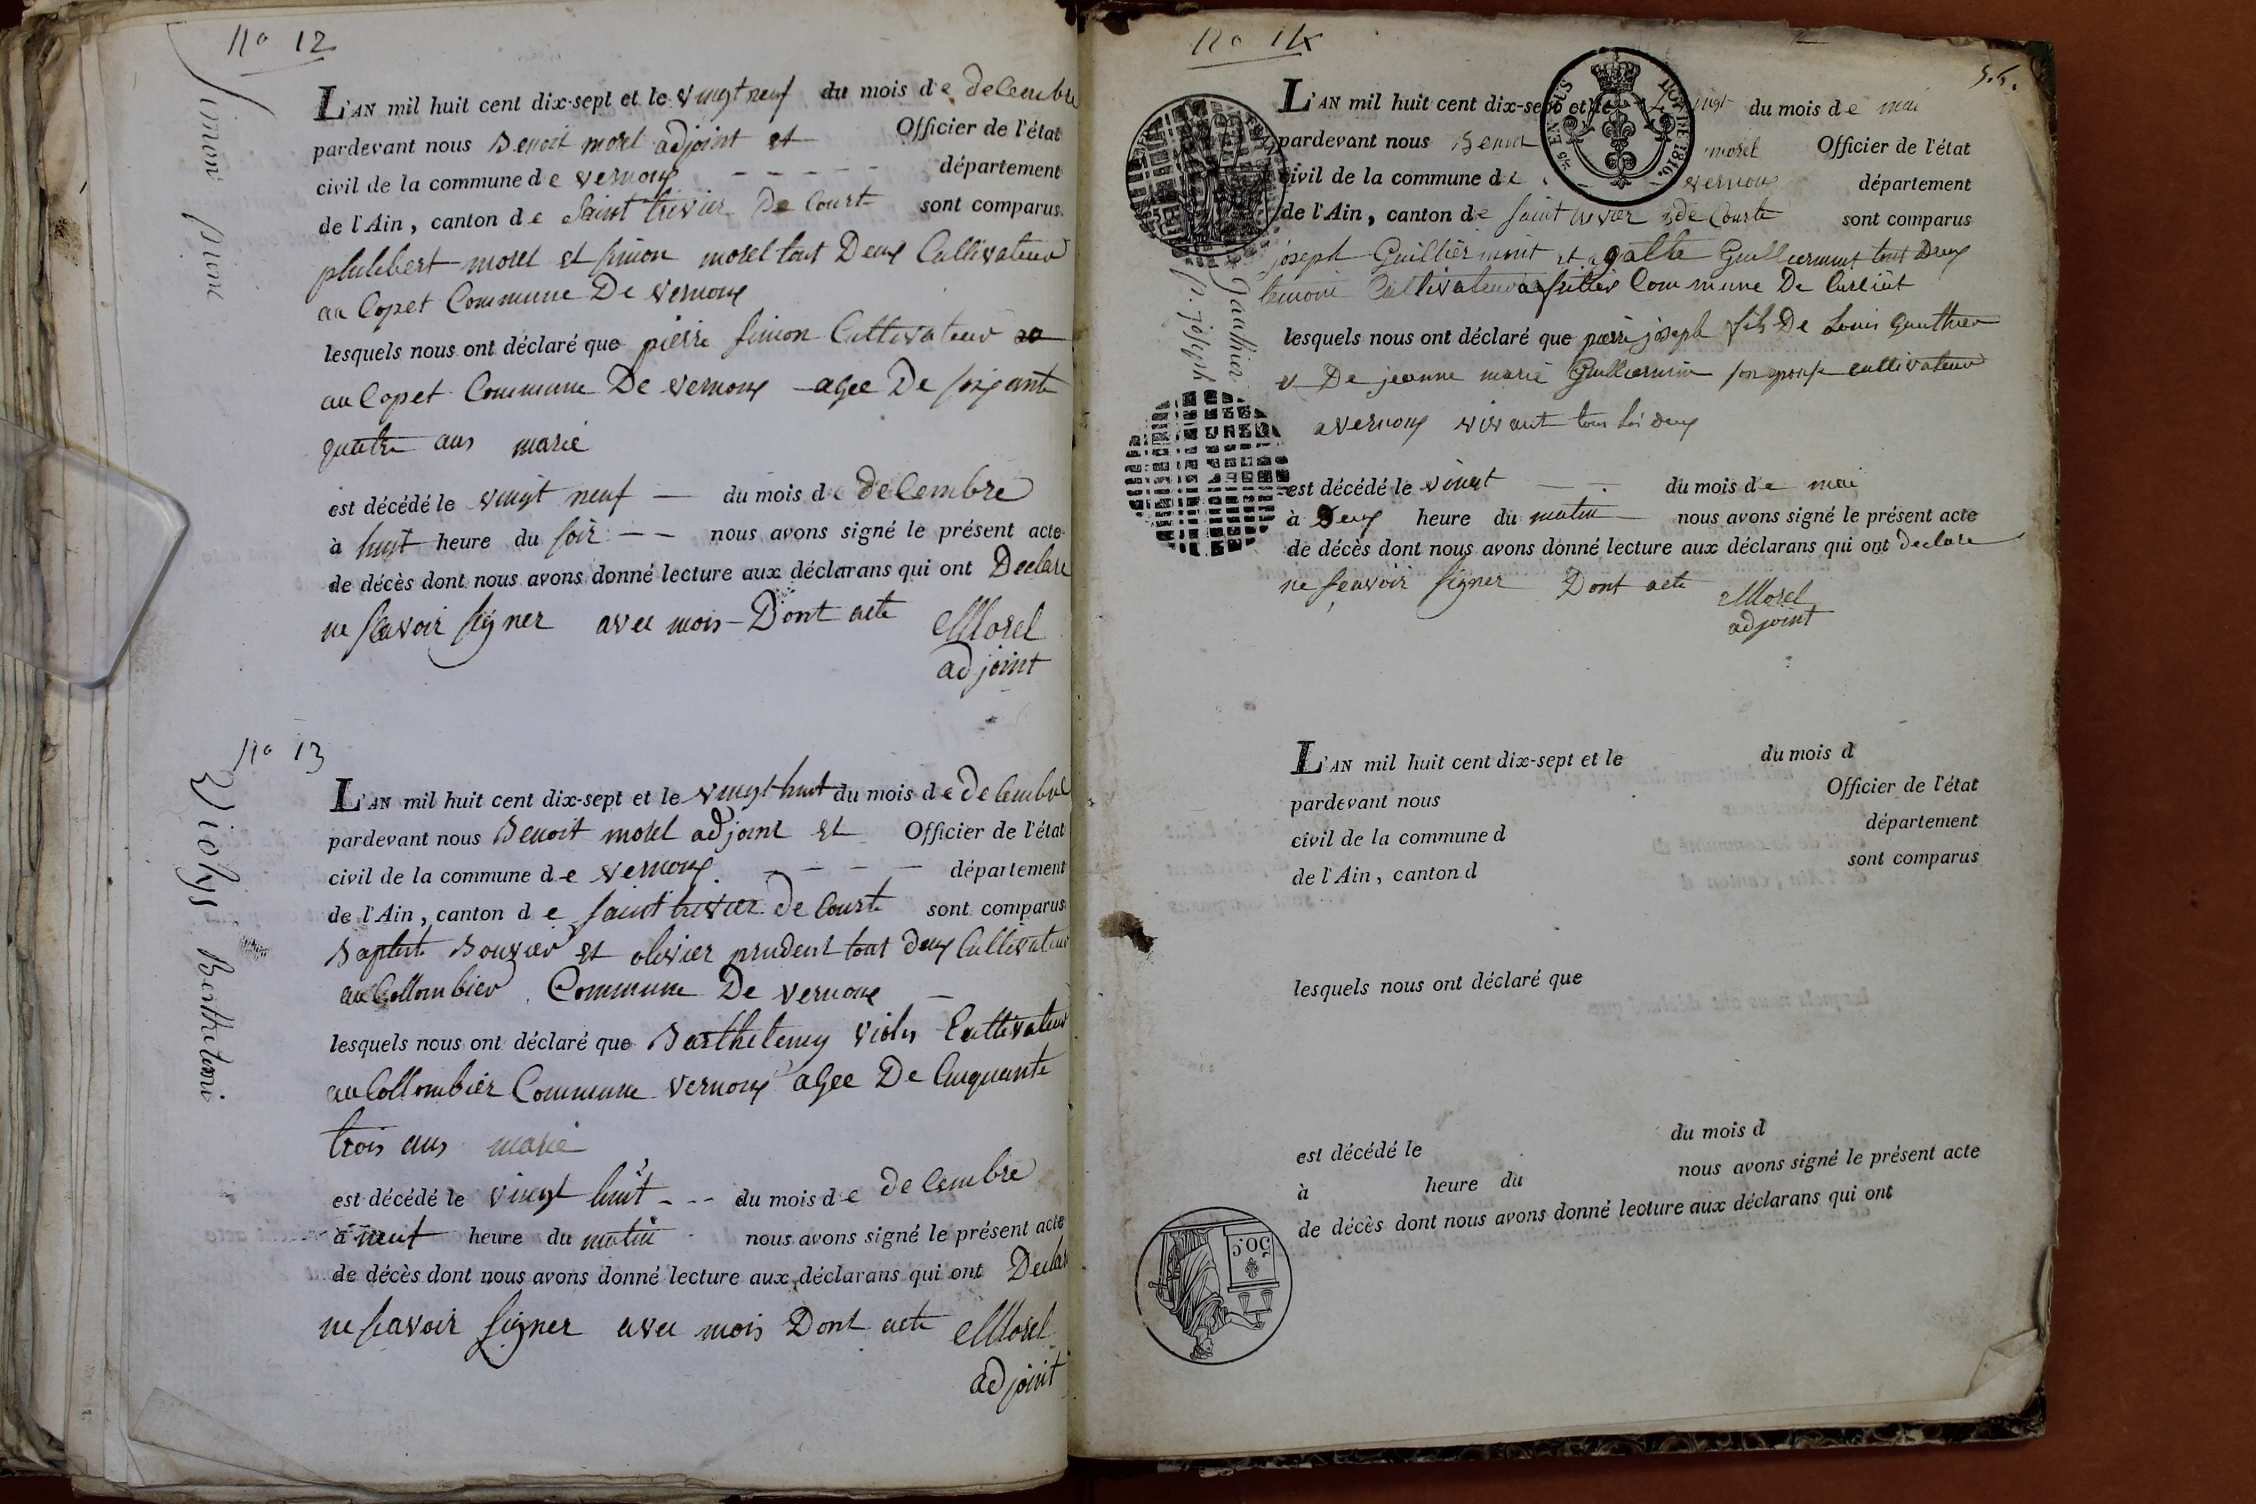 No 12
Simon pierre
L'AN mil huit cent dix-sept et le vingt neuf du mois de decembre
pardevant nous Benoit morel adjoint et Officier de l'état
civil de la commune de vernoux - - - - - département
de l'Ain, canton de Saint trivier De Courte sont comparus
philibert morel et simon morel tout Deux Cultivateur
au Copet Commune De vernoux
lesquels nous ont déclaré que pierre simon Cultivateur
au Copet Commune De vernoux agee De soixante
quatre ans marié
est décédé le vingt neuf — du mois de decembre
à huit heure du soir — — nous avons signé le présent acte
de décès dont nous avons donné lecture aux déclarans qui ont Declare
ne scavoir signer avec mois - Dont acte Morel
adjoint
No 13
Violys Berthelemi
L'AN mil huit cent dix-sept et le vingt huit du mois de decembre
pardevant nous Benoit morel adjoint et Officier de l'état
civil de la commune de vernoux - - - - département
de l'Ain, canton de saint trivier de Courte sont comparus
Baptiste Bouvier et olivier prudent tout deux Cultivateur
au Collombier Commune De vernoux —
lesquels nous ont déclaré que Barthelemy violys Cultivateur
au Collombier Commune vernoux agee De Cinquante
trois ans marié
est décédé le vingt huit - - - du mois de decembre
à neuf heure du matin - nous avons signé le présent acte
de décès dont nous avons donné lecture aux déclarans qui ont Declare
ne scavoir signer avec mois Dont acte Morel
adjoint
No 14
5.5.
Gauthier
p. joseph
5 EN SUS LOI DE 1816.
L'AN mil huit cent dix-sept et le vingt du mois de mai
pardevant nous Benoit morel Officier de l'état
civil de la commune de vernoux département
de l'Ain, canton de saint trivier de Courte sont comparus
joseph Guilliermint et agathe Guilliermint tout Deux
temoin Cultivateur Commune De Curciat
lesquels nous ont déclaré que pierre joseph fils De Louis Gauthier
et De jeanne marie Guilliermin son epouse cultivateur
a vernoux vivant tous les deux
est décédé le vingt — - du mois de mai
à Deux heure du matin — nous avons signé le présent acte
de décès dont nous avons donné lecture aux déclarans qui ont declare
ne scavoir signer Dont acte Morel
adjoint
L'AN mil huit cent dix-sept et le du mois d
pardevant nous Officier de l'état
civil de la commune d département
de l'Ain, canton d sont comparus
lesquels nous ont déclaré que
est décédé le du mois d
à heure du nous avons signé le présent acte
de décès dont nous avons donné lecture aux déclarans qui ont
50.C